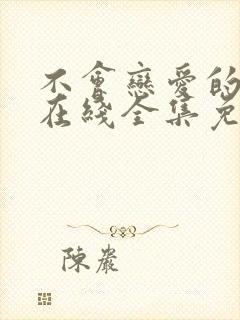 不會戀愛的
在綫全集免
陳巖